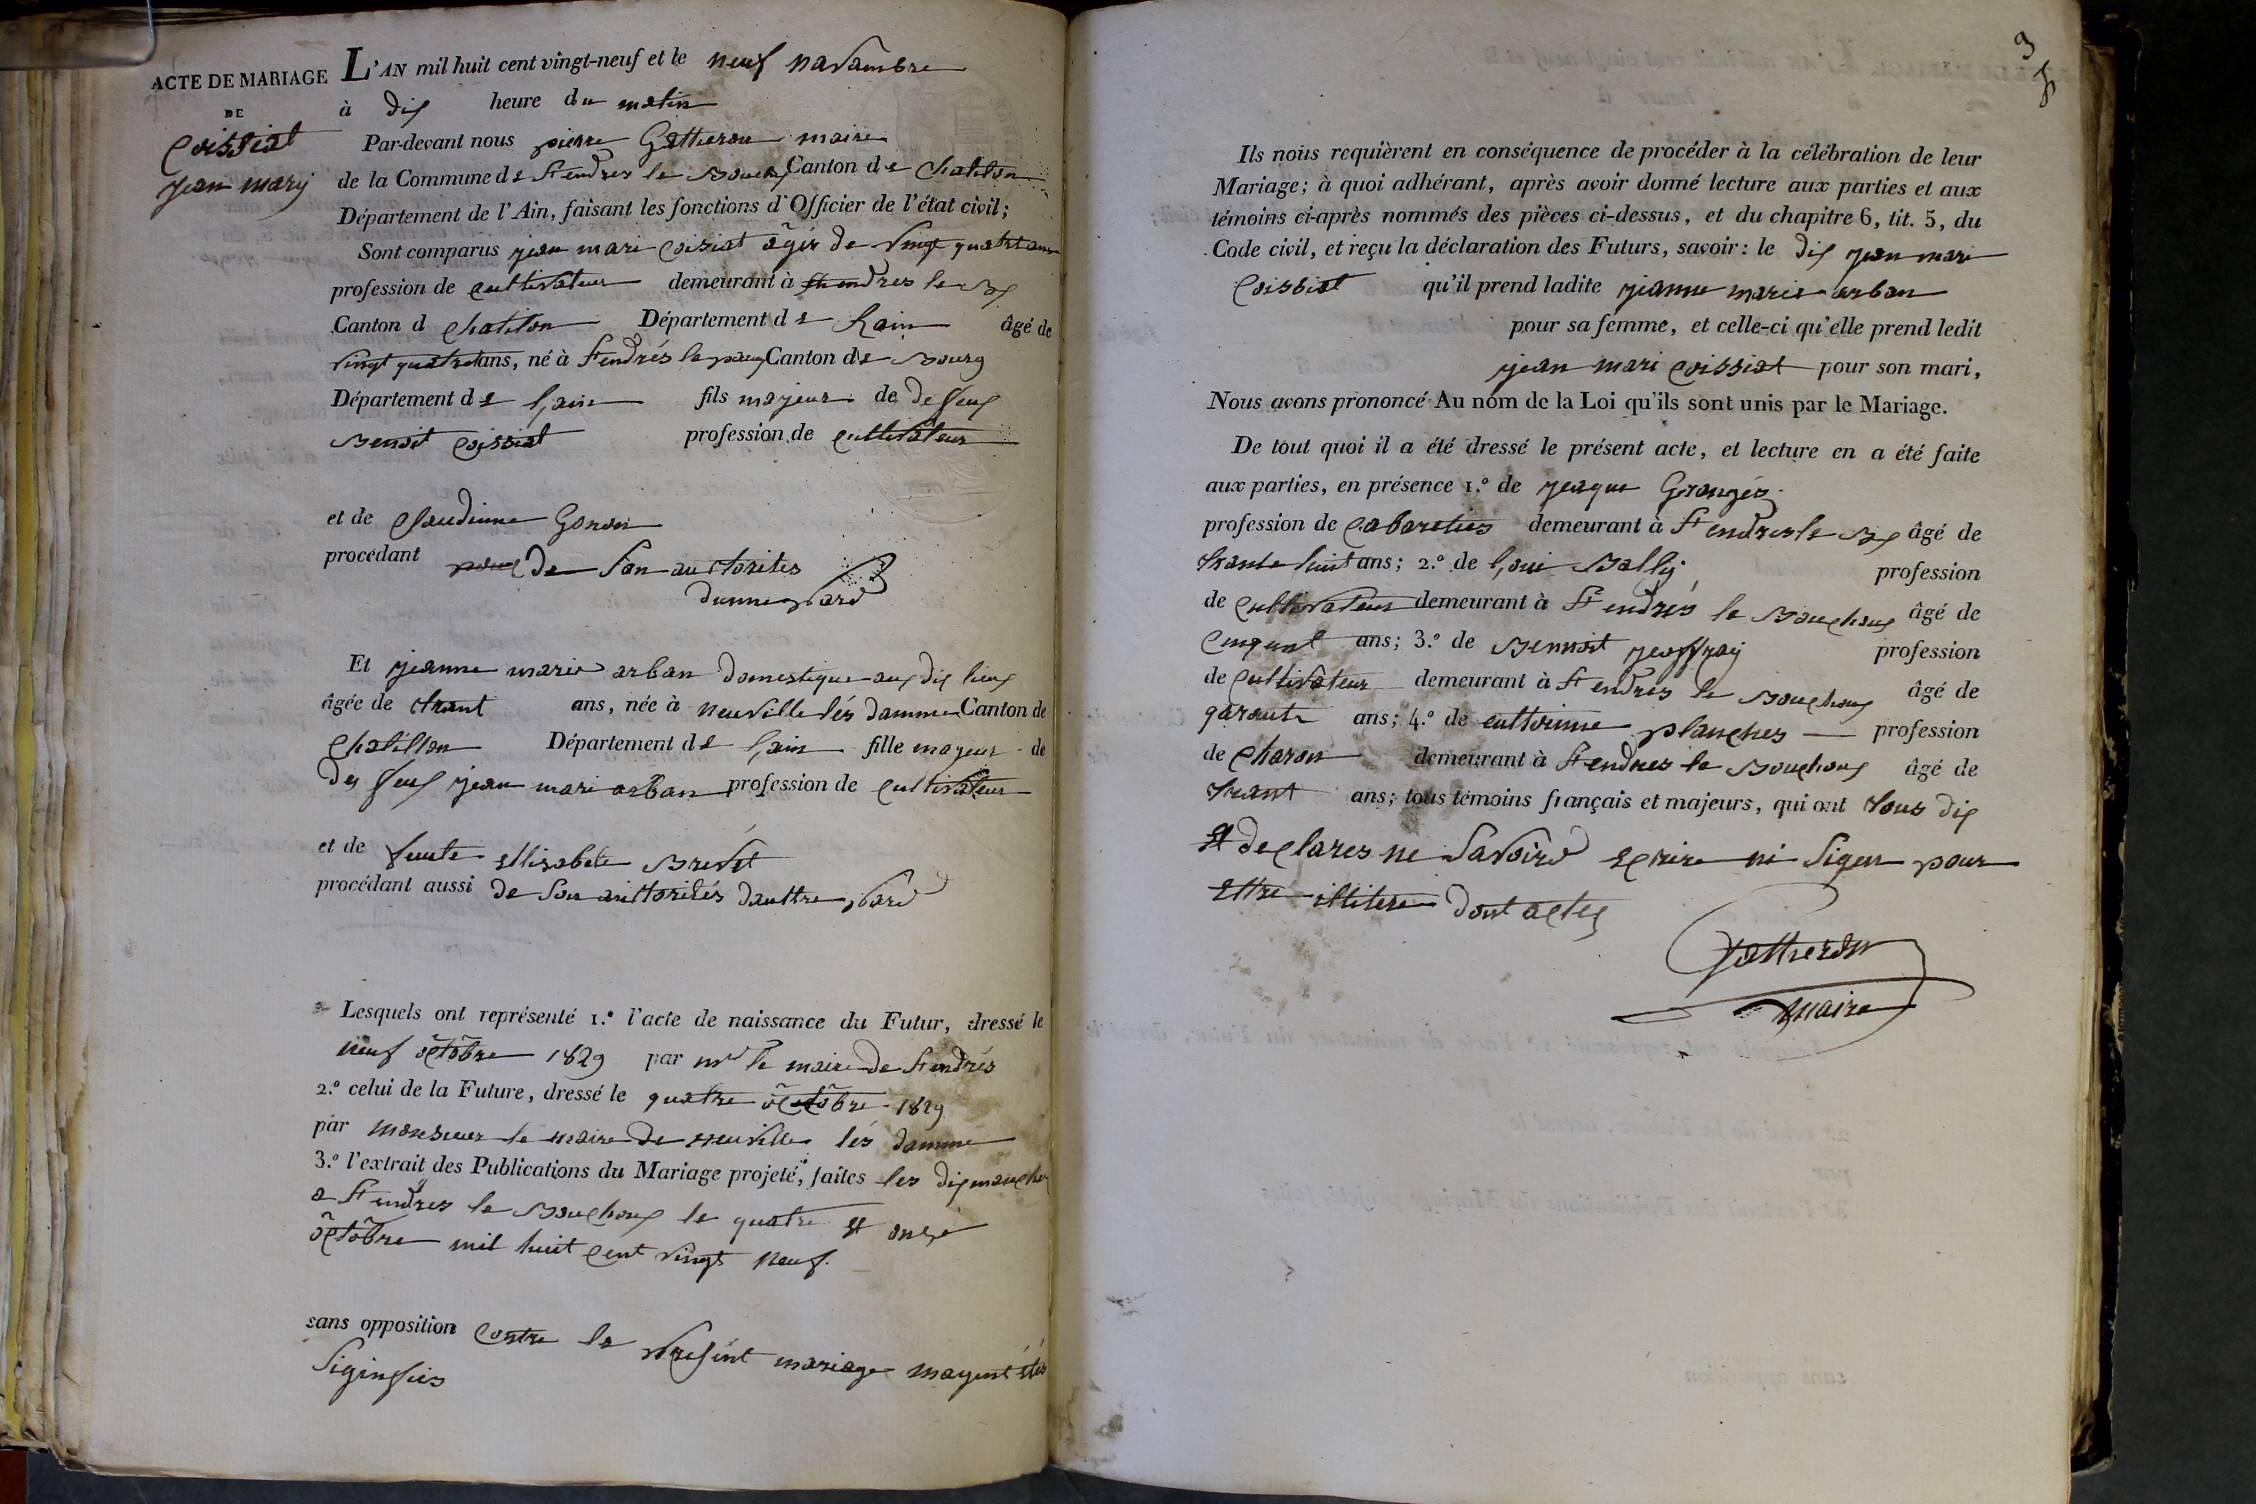 ACTE DE MARIAGE
DE
Coissiat
jean mary
L'AN mil huit cent vingt-neuf et le neuf navambre
à dix heure du matin
Par-devant nous pierre Gatheron maire
de la Commune de St endres le Bouchoux Canton de Chatilon
Département de l'Ain, faisant les fonctions d'Officier de l'état civil;
Sont comparus jean mari Coisiat âgés de vingt quatre ans
profession de cultivateur demeurant à St endres le Bx
Canton d Chatilon Département de Lain âgé de
vingt quatre ans, né à St endrés le Canton de Bourg
Département de Lain fils majeur de defeux
Benoit Coissiat profession de cultivateur
et de Claudinne Gonon
procédant de son authorites
dunne pard
Et jeanne marie arban domestique aux dix lieux
âgée de trant ans, née à neuville lés damme Canton de
Chatillon Département de Lain fille majeur de
de feux jean mari arban profession de cultivateur
et de feunte Ellisabete Brevet
procédant aussi de son authorités dauttre pard
Lesquels ont représenté 1.º l'acte de naissance du Futur, dressé le
neuf octobre 1829 par mr le maire de St endrés
2.º celui de la Future, dressé le quatre octobre 1829
par monsieur le maire de neuville lés damme
3.º l'extrait des Publications du Mariage projeté, faites les dixmanche
a St endres le Bouchoux le quatre et onze
octobre mil huit cent vingt neuf.
sans opposition contre le présent mariage mayent étés
Siginfiés
3
Ils nous requièrent en conséquence de procéder à la célébration de leur
Mariage; à quoi adhérant, après avoir donné lecture aux parties et aux
témoins ci-après nommés des pièces ci-dessus, et du chapitre 6, tit. 5, du
Code civil, et reçu la déclaration des Futurs, savoir: le dix jean mari
Coissiat qu'il prend ladite jeanne marie arban
pour sa femme, et celle-ci qu'elle prend ledit
jean mari Coissiat pour son mari,
Nous avons prononcé Au nom de la Loi qu'ils sont unis par le Mariage.
De tout quoi il a été dressé le présent acte, et lecture en a été faite
aux parties, en présence 1.º de jeaque Grangés
profession de Cabareties demeurant à St endres le Bx âgé de
trante huit ans; 2.º de Loui Bally profession
de cultivateur demeurant à St endrés le Bouchoux âgé de
cinquent ans; 3.º de Bennoit jeoffray profession
de cultivateur demeurant à St endres le Bouchoux âgé de
garante ans; 4.º de enttoinne planches profession
de Charon demeurant à St endres le Bouchoux âgé de
trant ans; tous témoins français et majeurs, qui ont tous dix
et declares ne savoird ecrire ni signer pour
ettre illitere dont actes
Gattheron
maire